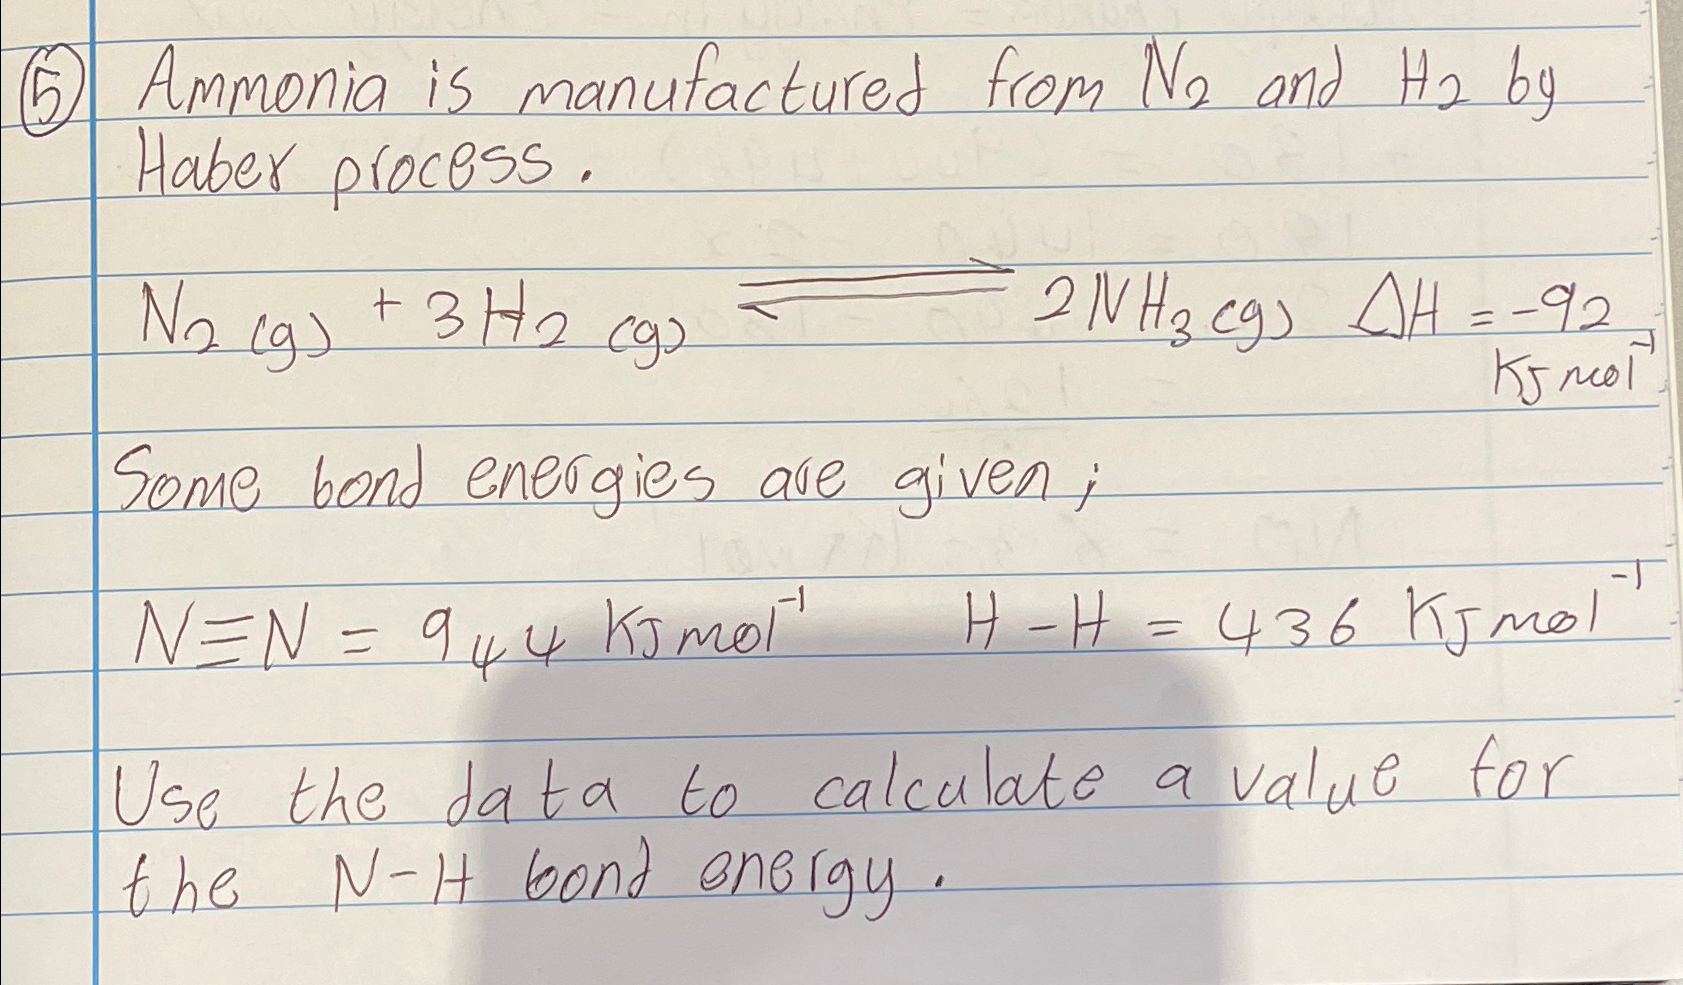 ⑤ Ammonia is manufactured from N₂ and H₂ by
Haber process.
N₂ (g) + 3H₂ (g) ⇌ 2NH₃ (g) ΔH = -92
KJ mol⁻¹
Some bond energies are given;
N≡N = 944 KJ mol⁻¹ H-H = 436 KJ mol⁻¹
Use the data to calculate a value for
the N-H bond energy.